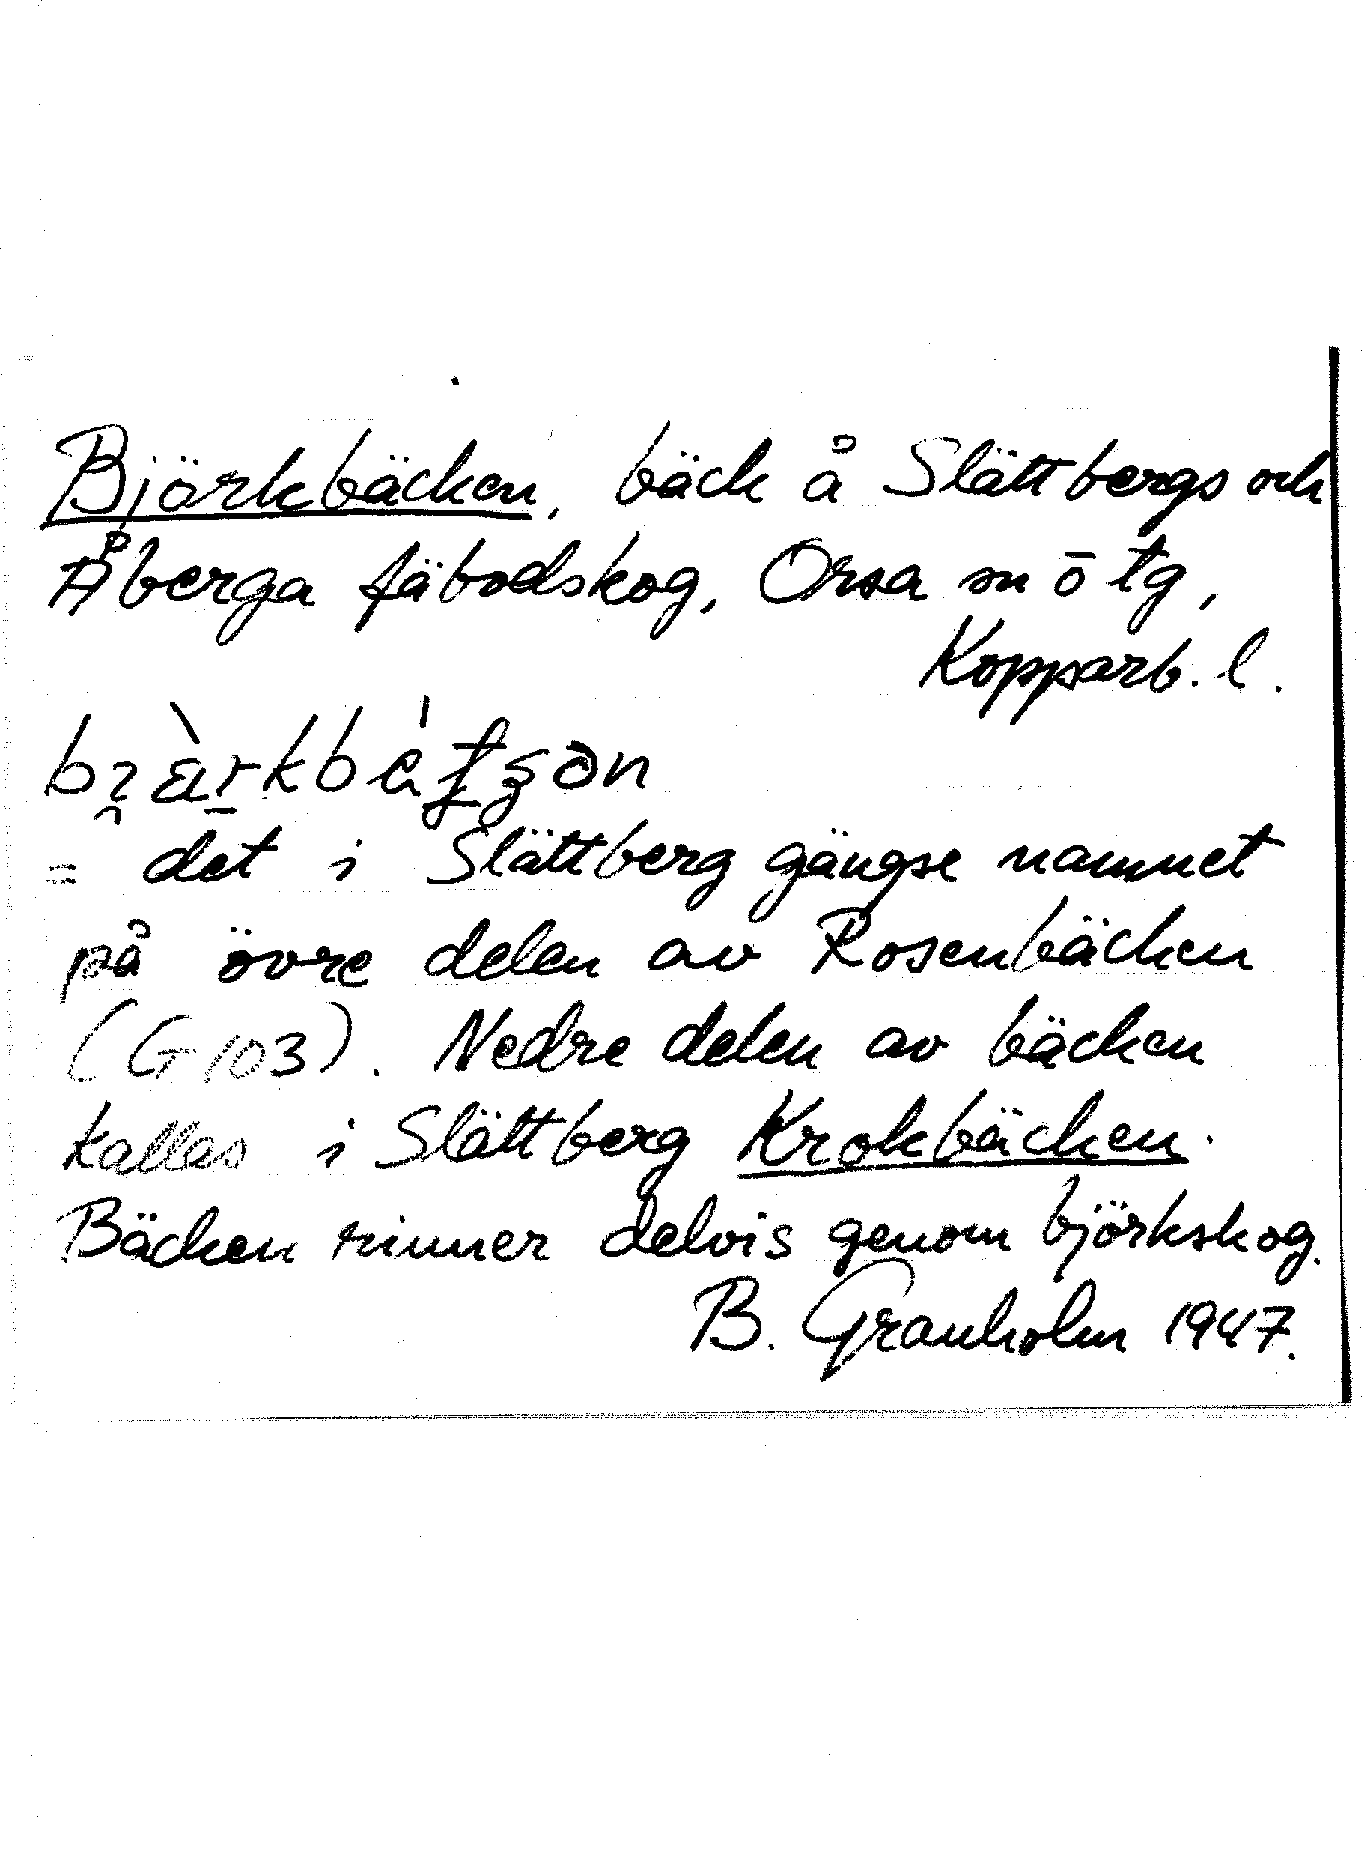 Björkbäcken, bäck å Slättbergs och
Åberga fäbodskog, Orsa sn ō tg,
Kopparb. l.
= det i Slättberg gängse namnet
på övre delen av Rosenbäcken
(G 103). Nedre delen av bäcken
kallas i Slättberg Krokbäcken.
Bäcken rinner delvis genom björkskog.
B. Granholm 1947.